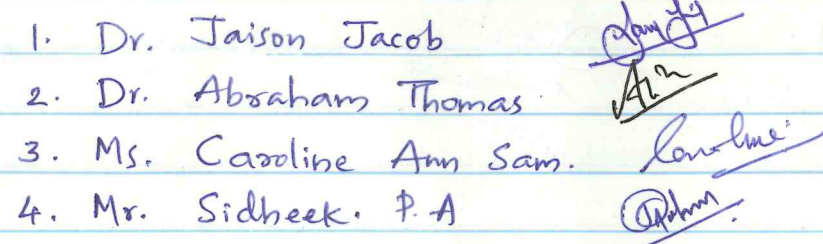 1. Dr. Jaison Jacob
2. Dr. Abraham Thomas
3. Ms. Caroline Ann Sam. Caroline
4. Mr. Sidheek. P.A